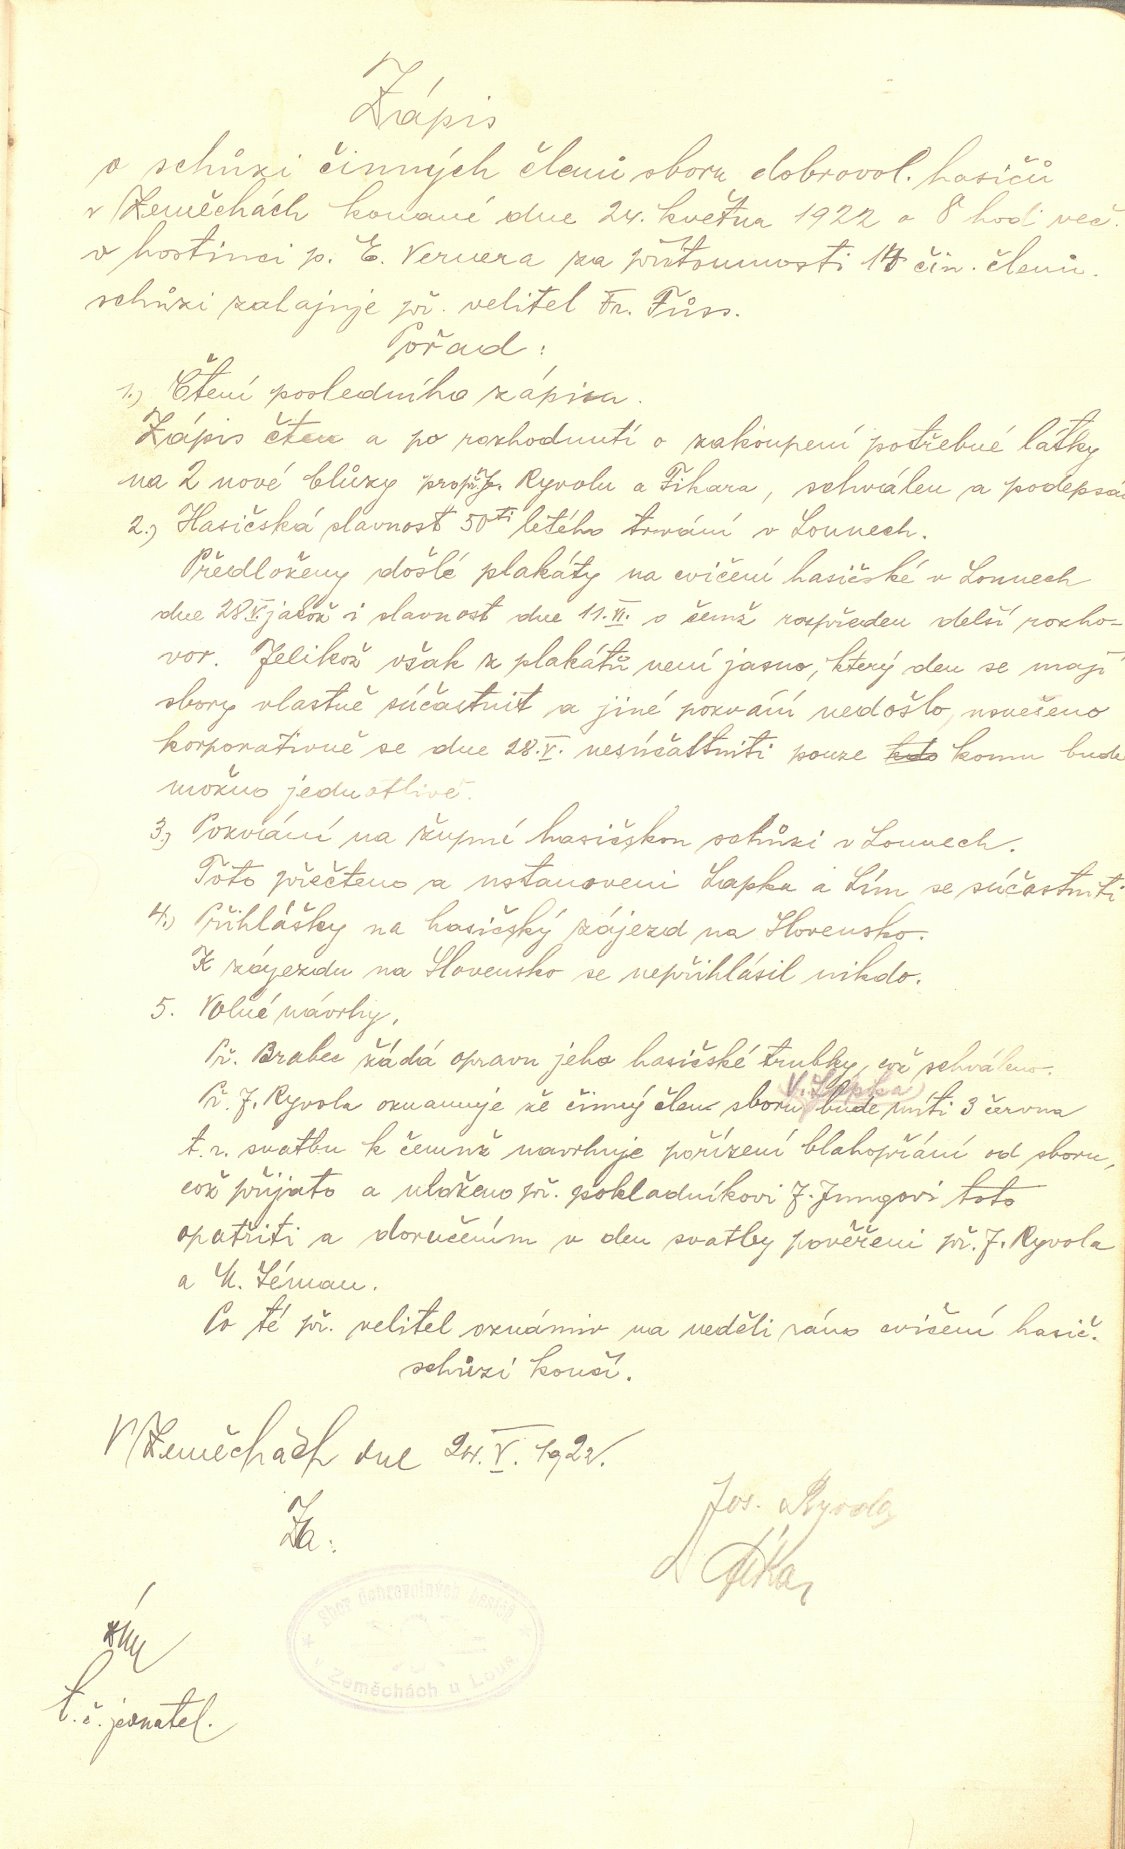 Zápis
o schůzi činných členů sboru dobrovol. hasičů
v Zeměchách konané dne 24. května 1922 o 8 hodi več.
v hostinci p. E. Vernera za přítomnosti 14 čin. členů.
schůzi zahajuje př. velitel Fr. Füss.
Pořad:
1.) Čtení posledního zápisu.
Zápis čten a po rozhodnutí o zakoupení potřebné látky
na 2 nové blůzy pro př. J. Ryvolu a Fihara, schválen a podepsán
2.) Hasičská slavnost 50ti letého trvání v Lounech.
Předloženy došlé plakáty na cvičení hasičské v Lounech
dne 28.V. jakož i slavnost dne 11.VI. o čemž rozpředen delší rozho-
vor. Jelikož však z plakátů není jasno, který den se mají
sbory vlastně súčastnit a jiné pozvání nedošlo, usnešeno
korporativně se dne 28.V. nesúčastniti pouze kdo komu bude
možno jednotlivě.
3.) Pozvání na župní hasičskou schůzi v Lounech.
Toto přečteno a ustanoveni Lapka a Lím se súčastniti
4.) Přihlášky na hasičský zájezd na Slovensko.
K zájezdu na Slovensko se nepřihlásil nikdo.
5. Volné návrhy.
Př. Brabec žádá opravu jeho hasičské trubky, což schváleno.
V. Lapka
Př. J. Ryvola oznamuje že činný člen sboru bude míti 3 června
t.r. svatbu k čemuž navrhuje pořízení blahopřání od sboru,
což přijato a uloženo př. pokladníkovi J. Jungovi toto
opatřiti a doručením v den svatby pověřeni př. J. Ryvola
a K. Zéman.
Po té př. velitel oznámiv na neděli ráno cvičení hasič.
schůzi končí.
V Zeměchách dne 24.V. 1922.
Za:
Jos. Ryvola
t.č. jednatel.
Sbor dobrovolných hasičů
v Zeměchách u Loun